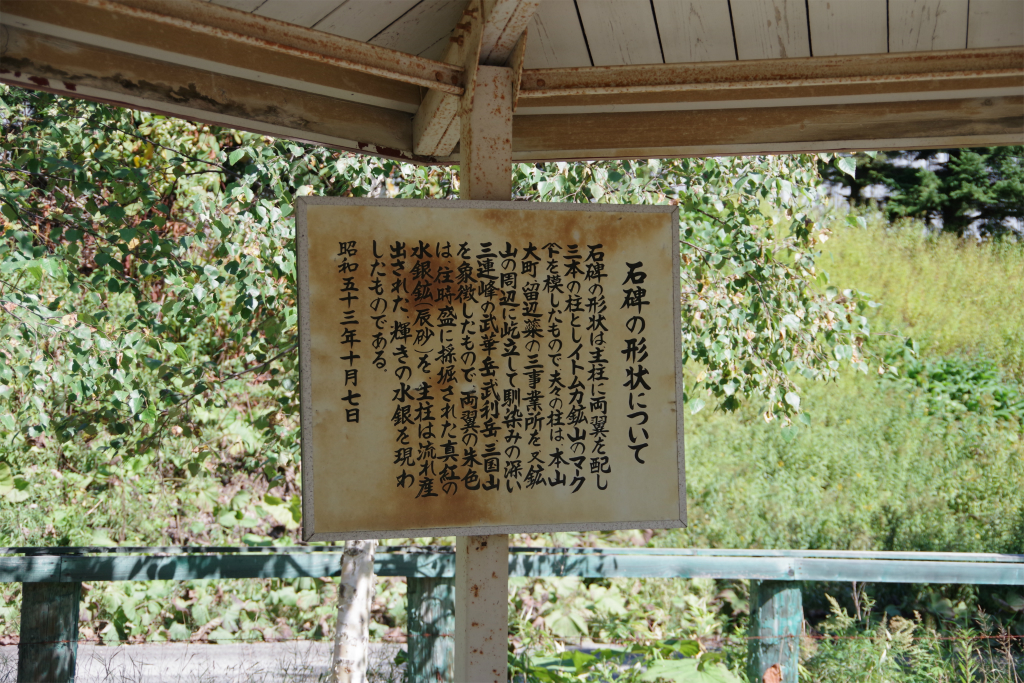 石碑の形状について
石碑の形状は主柱に両翼を配し
三本の柱としイトムカ鉱山のマーク
を模したもので夫々の柱は、本山
大町、留辺蘂の三事業所を又鉱
山の周辺に屹立して馴染みの深い
三連峰の武華岳、武利岳、三国山
を象徴したもので、両翼の朱色
は、往時盛に採掘された真紅の
水銀鉱(辰砂)を、主柱は流れ産
出された、輝きの水銀を現わ
したものである。
昭和五十三年十月七日